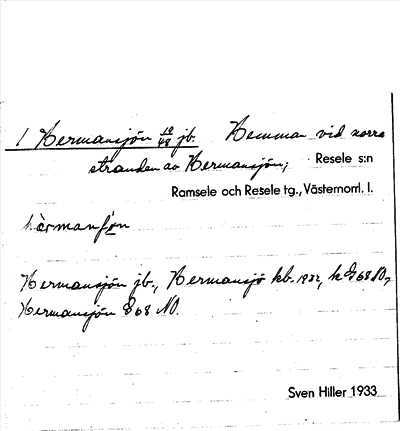 1 Hermansjön 19/48 jb. Hemman vid norra
stranden av Hermansjön; Resele s:n
Ramsele och Resele tg., Västernorrl. l.
hèrmanʃǿn
Hermansjön jb., Hermansjö kb. 1932, k G 68 NO,
Hermansjön 8 68 NO.
Sven Hiller 1933